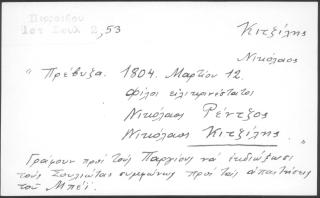 Περραιβού
Ιστ Σουλ 2,53
Κιτζίλης
Νικόλαος
"Πρέβυζα. 1804. Μαρτίου 12.
Φίλοι ειλικρινέστατοι
Νικόλαος Ρέντζος
Νικόλαος Κιτζίλης."
Γράφουν προς τους Παργίους να εκδιώξωσι
τους Σουλιώτας συμφώνως προς τας απαιτήσεις
του Μπέϊ.